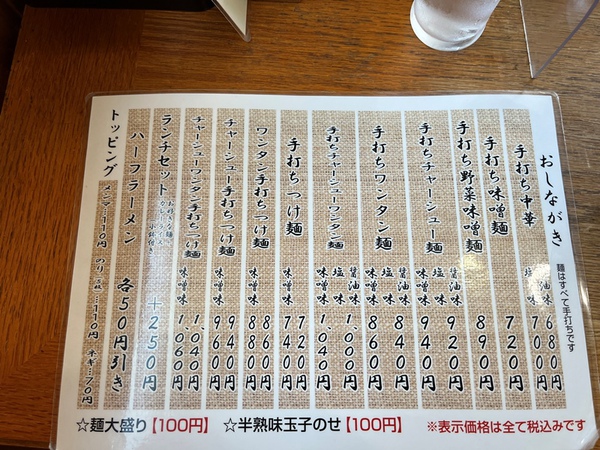 おしながき
麺はすべて手打ちです
手打ち中華
醤油味 680円
塩味 700円
手打ち味噌麺 720円
手打ち野菜味噌麺 890円
手打ちチャーシュー麺
醤油味 920円
塩味
味噌味 940円
手打ちワンタン麺
醤油味 840円
塩味
味噌味 860円
手打ちチャーシューワンタン麺
醤油味 1,000円
塩味
味噌味 1,040円
手打ちつけ麺
720円
味噌味 740円
ワンタン手打ちつけ麺
860円
味噌味 880円
チャーシュー手打ちつけ麺
940円
味噌味 960円
チャーシューワンタン手打ちつけ麺
1,040円
味噌味 1,060円
ランチセット
小鉢付き
+250円
ハーフラーメン 各50円引き
トッピング
メンマ…110円 のり…110円 ネギ…70円
☆麺大盛り【100円】 ☆半熟味玉子のせ【100円】 ※表示価格は全て税込みです